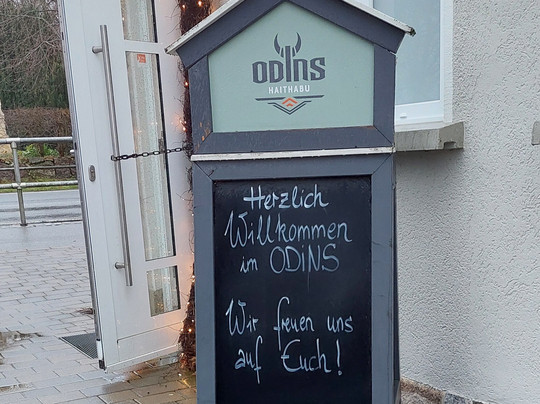 ODINS
HAITHABU
Herzlich
Willkommen
im ODINS
Wir freuen uns
auf Euch!